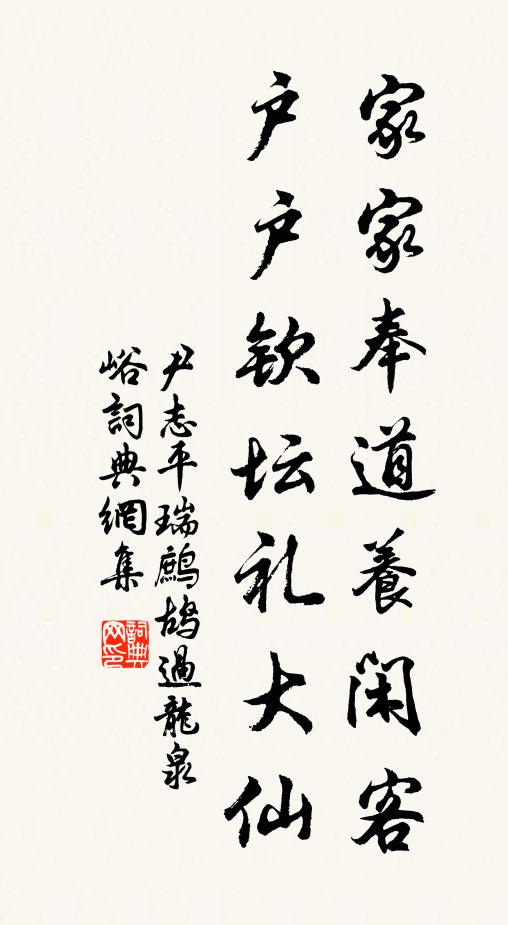 家家奉道養闲客
户户钦坛礼大仙
尹志平瑞鹧鸪過龍泉
峪詞典網集
詞典
网印